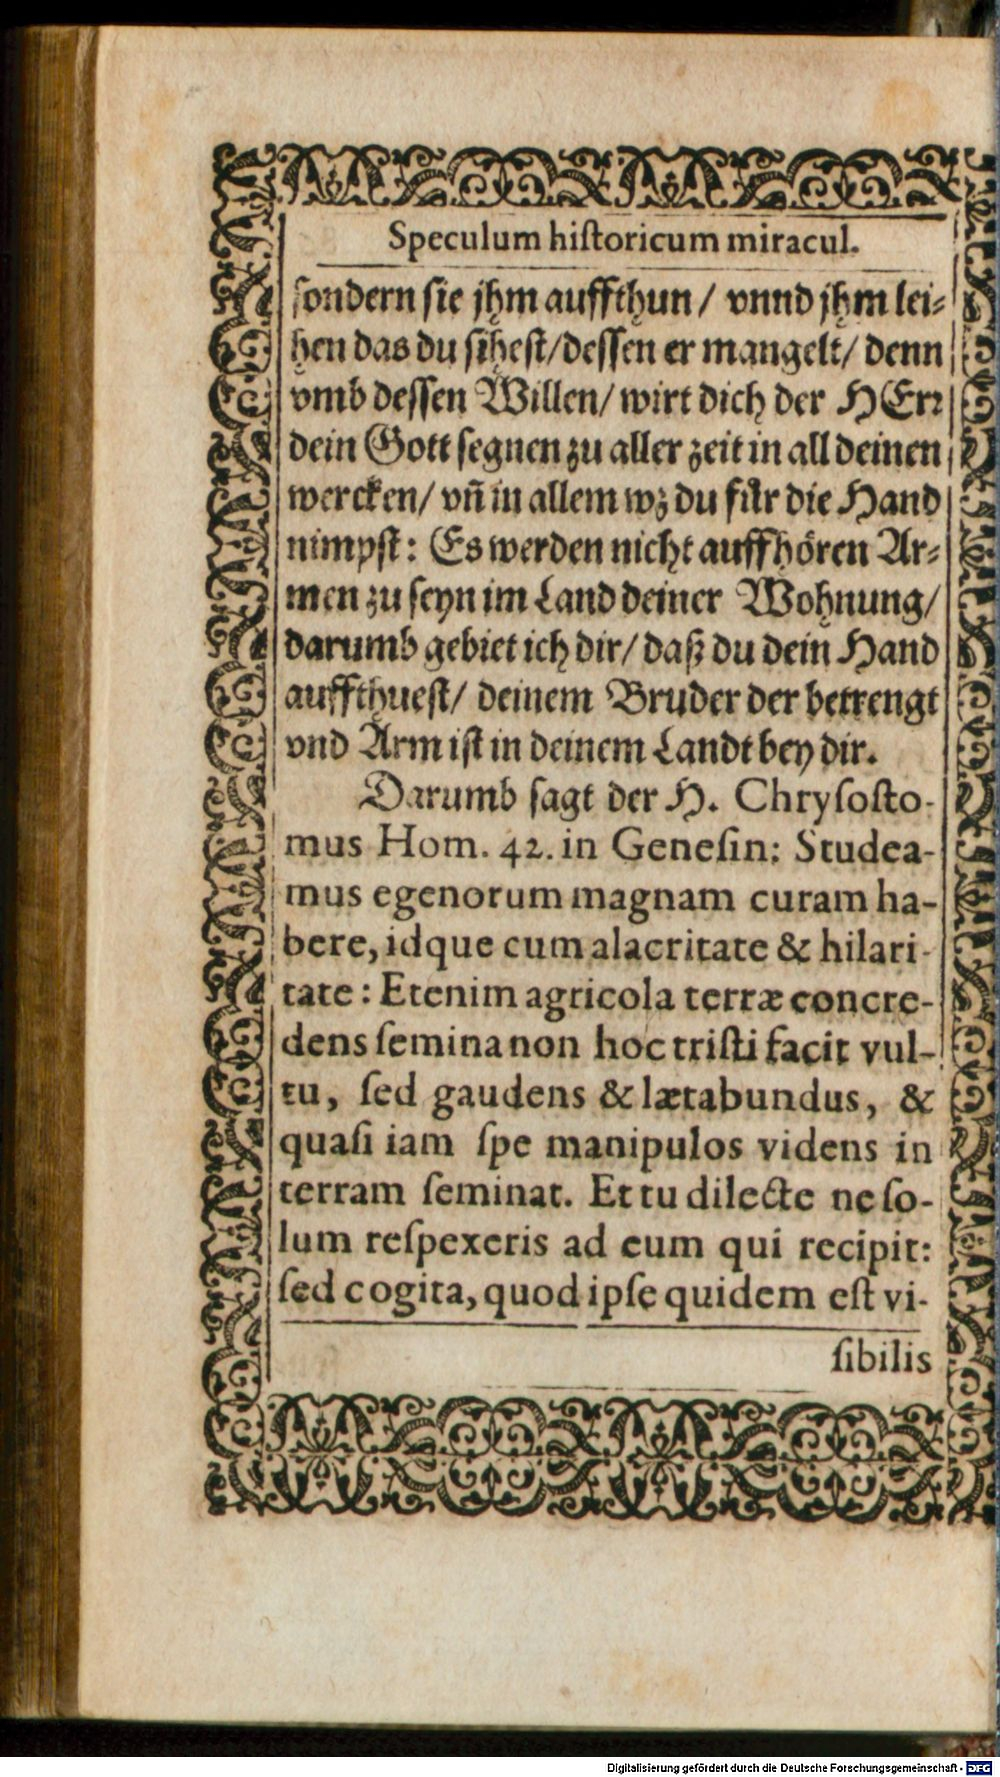 Speculum hiſtoricum miracul.
ſondern ſie jhm auffthun / vnnd jhm lei⸗
hen das du ſiheſt/deſſen er mangelt/ denn
vmb deſſen Willen/ wirt dich der HErr
dein Gott ſegnen zu aller zeit in all deinen
wercken/ vñ in allem wz du für die Hand
nimpſt: Es werden nicht auffhören Ar⸗
men zu ſeyn im Land deiner Wohnung/
darumb gebiet ich dir/ daß du dein Hand
auffthueſt/ deinem Bruder der betrengt
vnd Arm iſt in deinem Landt bey dir.
Darumb ſagt der H. Chryſoſto-
mus Hom. 42. in Geneſin: Studea-
mus egenorum magnam curam ha-
bere, idque cum alacritate & hilari-
tate: Etenim agricola terræ concre-
dens ſemina non hoc triſti facit vul-
tu, ſed gaudens & lætabundus, &
quaſi iam ſpe manipulos videns in
terram ſeminat. Et tu dilecte ne ſo-
lum reſpexeris ad eum qui recipit:
ſed cogita, quod ipſe quidem eſt vi-
ſibilis
Digitalisierung gefördert durch die Deutsche Forschungsgemeinschaft - DFG